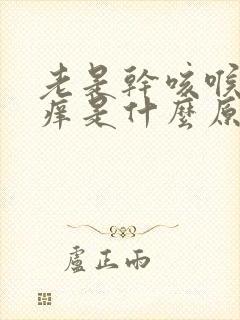 老是幹咳喉
痒是什麼原
盧正雨